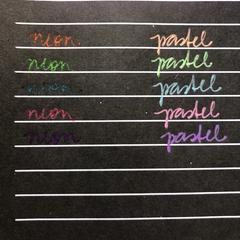 neon pastel
neon pastel
neon pastel
neon pastel
neon pastel